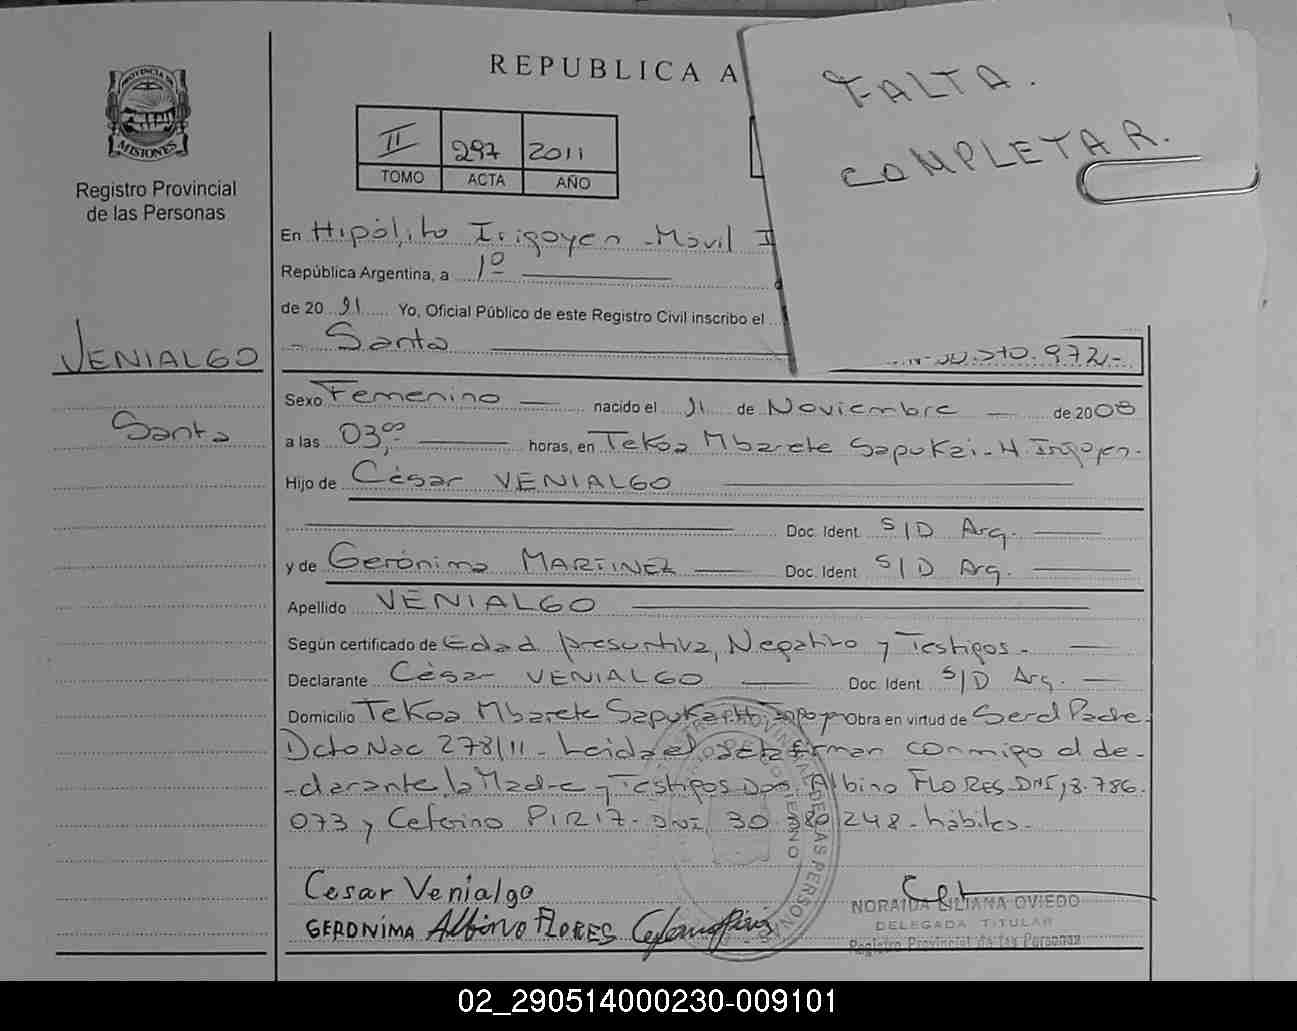 REPUBLICA A
FALTA.
COMPLETAR.
PROVINCIA DE
MISIONES
Registro Provincial
de las Personas
II 297 2011
TOMO ACTA AÑO
En Hipólito Irigoyen - Móvil I
República Argentina, a 1º
de 20 11 Yo, Oficial Público de este Registro Civil inscribo el
- Santa
972.-
VENIALGO
Santa
Sexo Femenino nacido el 11 de Noviembre de 2008
a las 03,00 horas, en Tekoa Mbarete Sapukai - H. Irigoyen.
Hijo de César VENIALGO
Doc. Ident. S/D Arg.
y de Gerónima MARTINEZ Doc. Ident S/D Arg.
Apellido VENIALGO
Según certificado de Edad presuntiva, Negativo y Testigos.
Declarante César VENIALGO Doc. Ident. S/D Arg.
Domicilio Tekoa Mbarete Sapukai H. Obra en virtud de Ser el Padre.
Dcto Nac 278/11 - Leida el acta firman conmigo el de-
-clarante, la Madre y Testigos Don Albino FLORES DNI 18.786.
073 y Ceferino PIRIZ - DNI 30.380.248 - hábiles.
Cesar Venialgo
GERONIMA Albino FLORES
NORAIDA LILIANA OVIEDO
DELEGADA TITULAR
Registro Provincial de las Personas
02_290514000230-009101